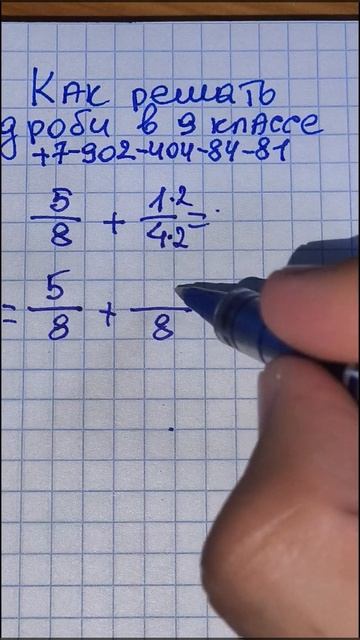 Как решать
дроби в 9 классе
+7-902-404-84-81
5/8 + 1·2/4·2 =
= 5/8 + /8